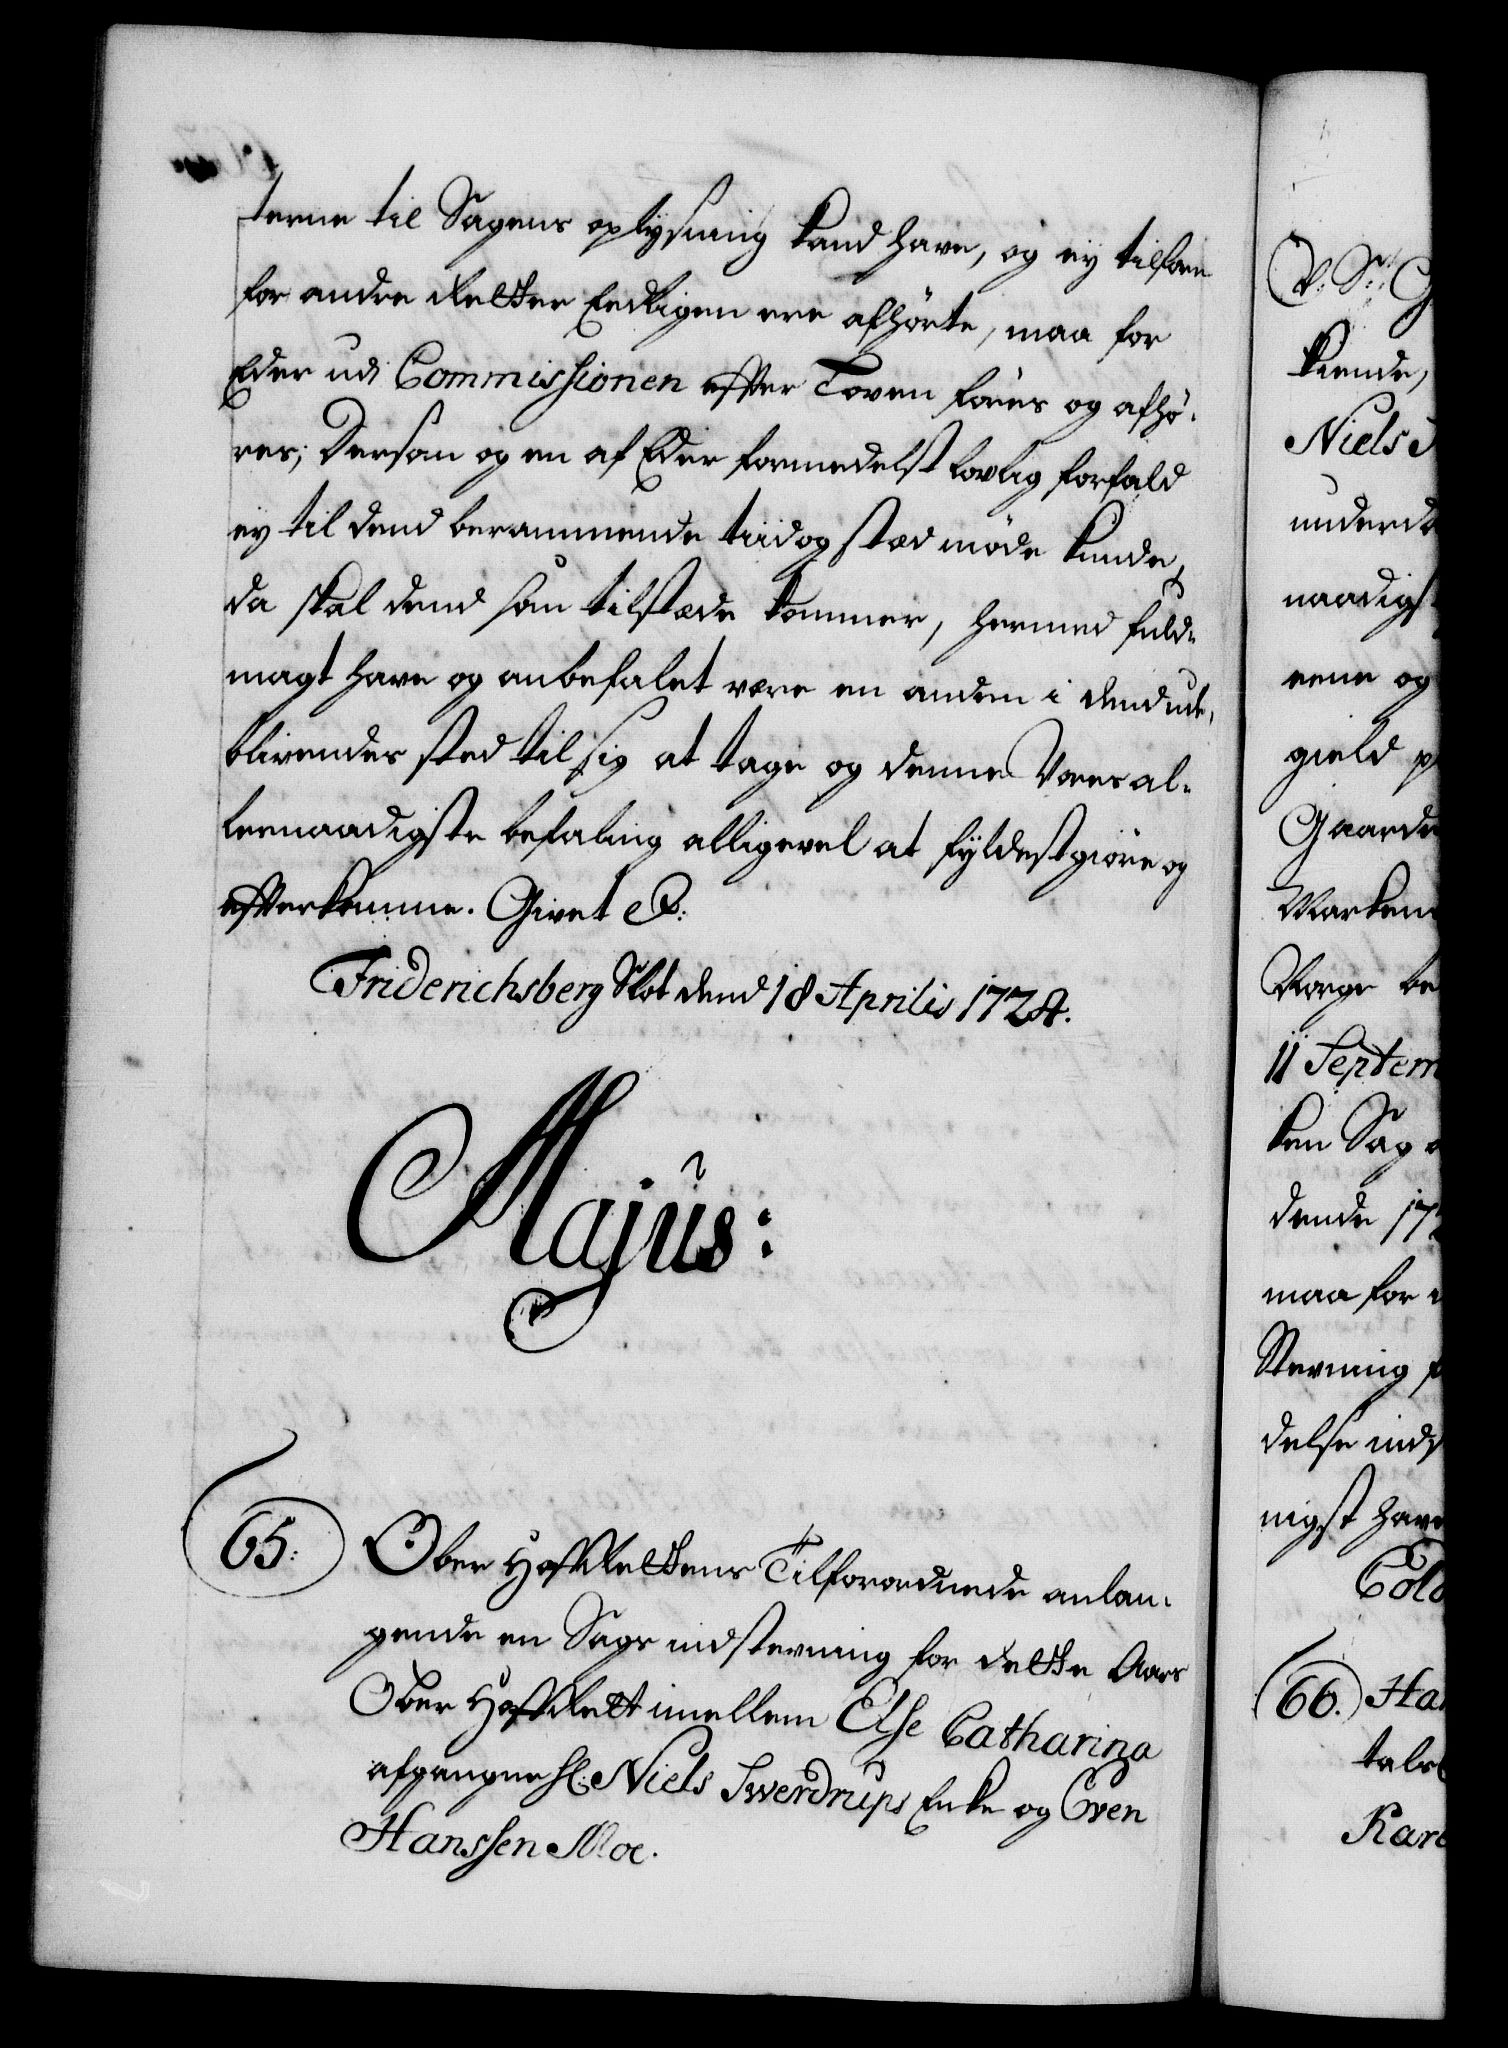 terne til Sagens oplysning kand have, og ey tilforn
for andre Retter Eedligen ere afhørte, maa for
Eder udi Commissionen efter Loven føres og afhø-
res; Dersom og en af Eder formedelst lovlig forfald
ey til dend berammende tiid og stæd møde kunde,
da skal dend som tilstæde kommer, hermed fuld-
magt have og anbefalet være en anden i dend ude-
blivendes sted til sig at tage og denne Vores al-
lernaadigste befaling alligevel at fyldestgiøre og
efterkomme. Givet &:
Friderichsberg Slot dend 18 Aprilis 1724.
Majus:
65: Ober HofRettens Tilforordnede anlan-
gende en Sags indstevning for dette Aars
Ober HofRett imellem Else Catharina
afgangne Sl: Niels Swerdrups Enke og Even
Hanssen Moe.
V. Sr: G
kiende,
Niels
underda
naadigst
eene og
gield p
Gaarde
Marken
Norge be
11 Septem
ken Sag
dende 172
maa for
Stevning
delse ind
nigst have
Cold
66. Ha
tals
Kar